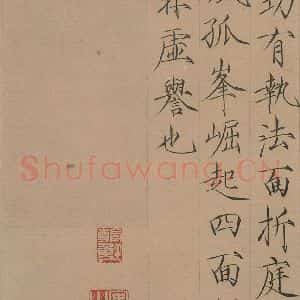 勁有執法面折庭
孤峯崛起四面
虛譽也
Shufawang.CN